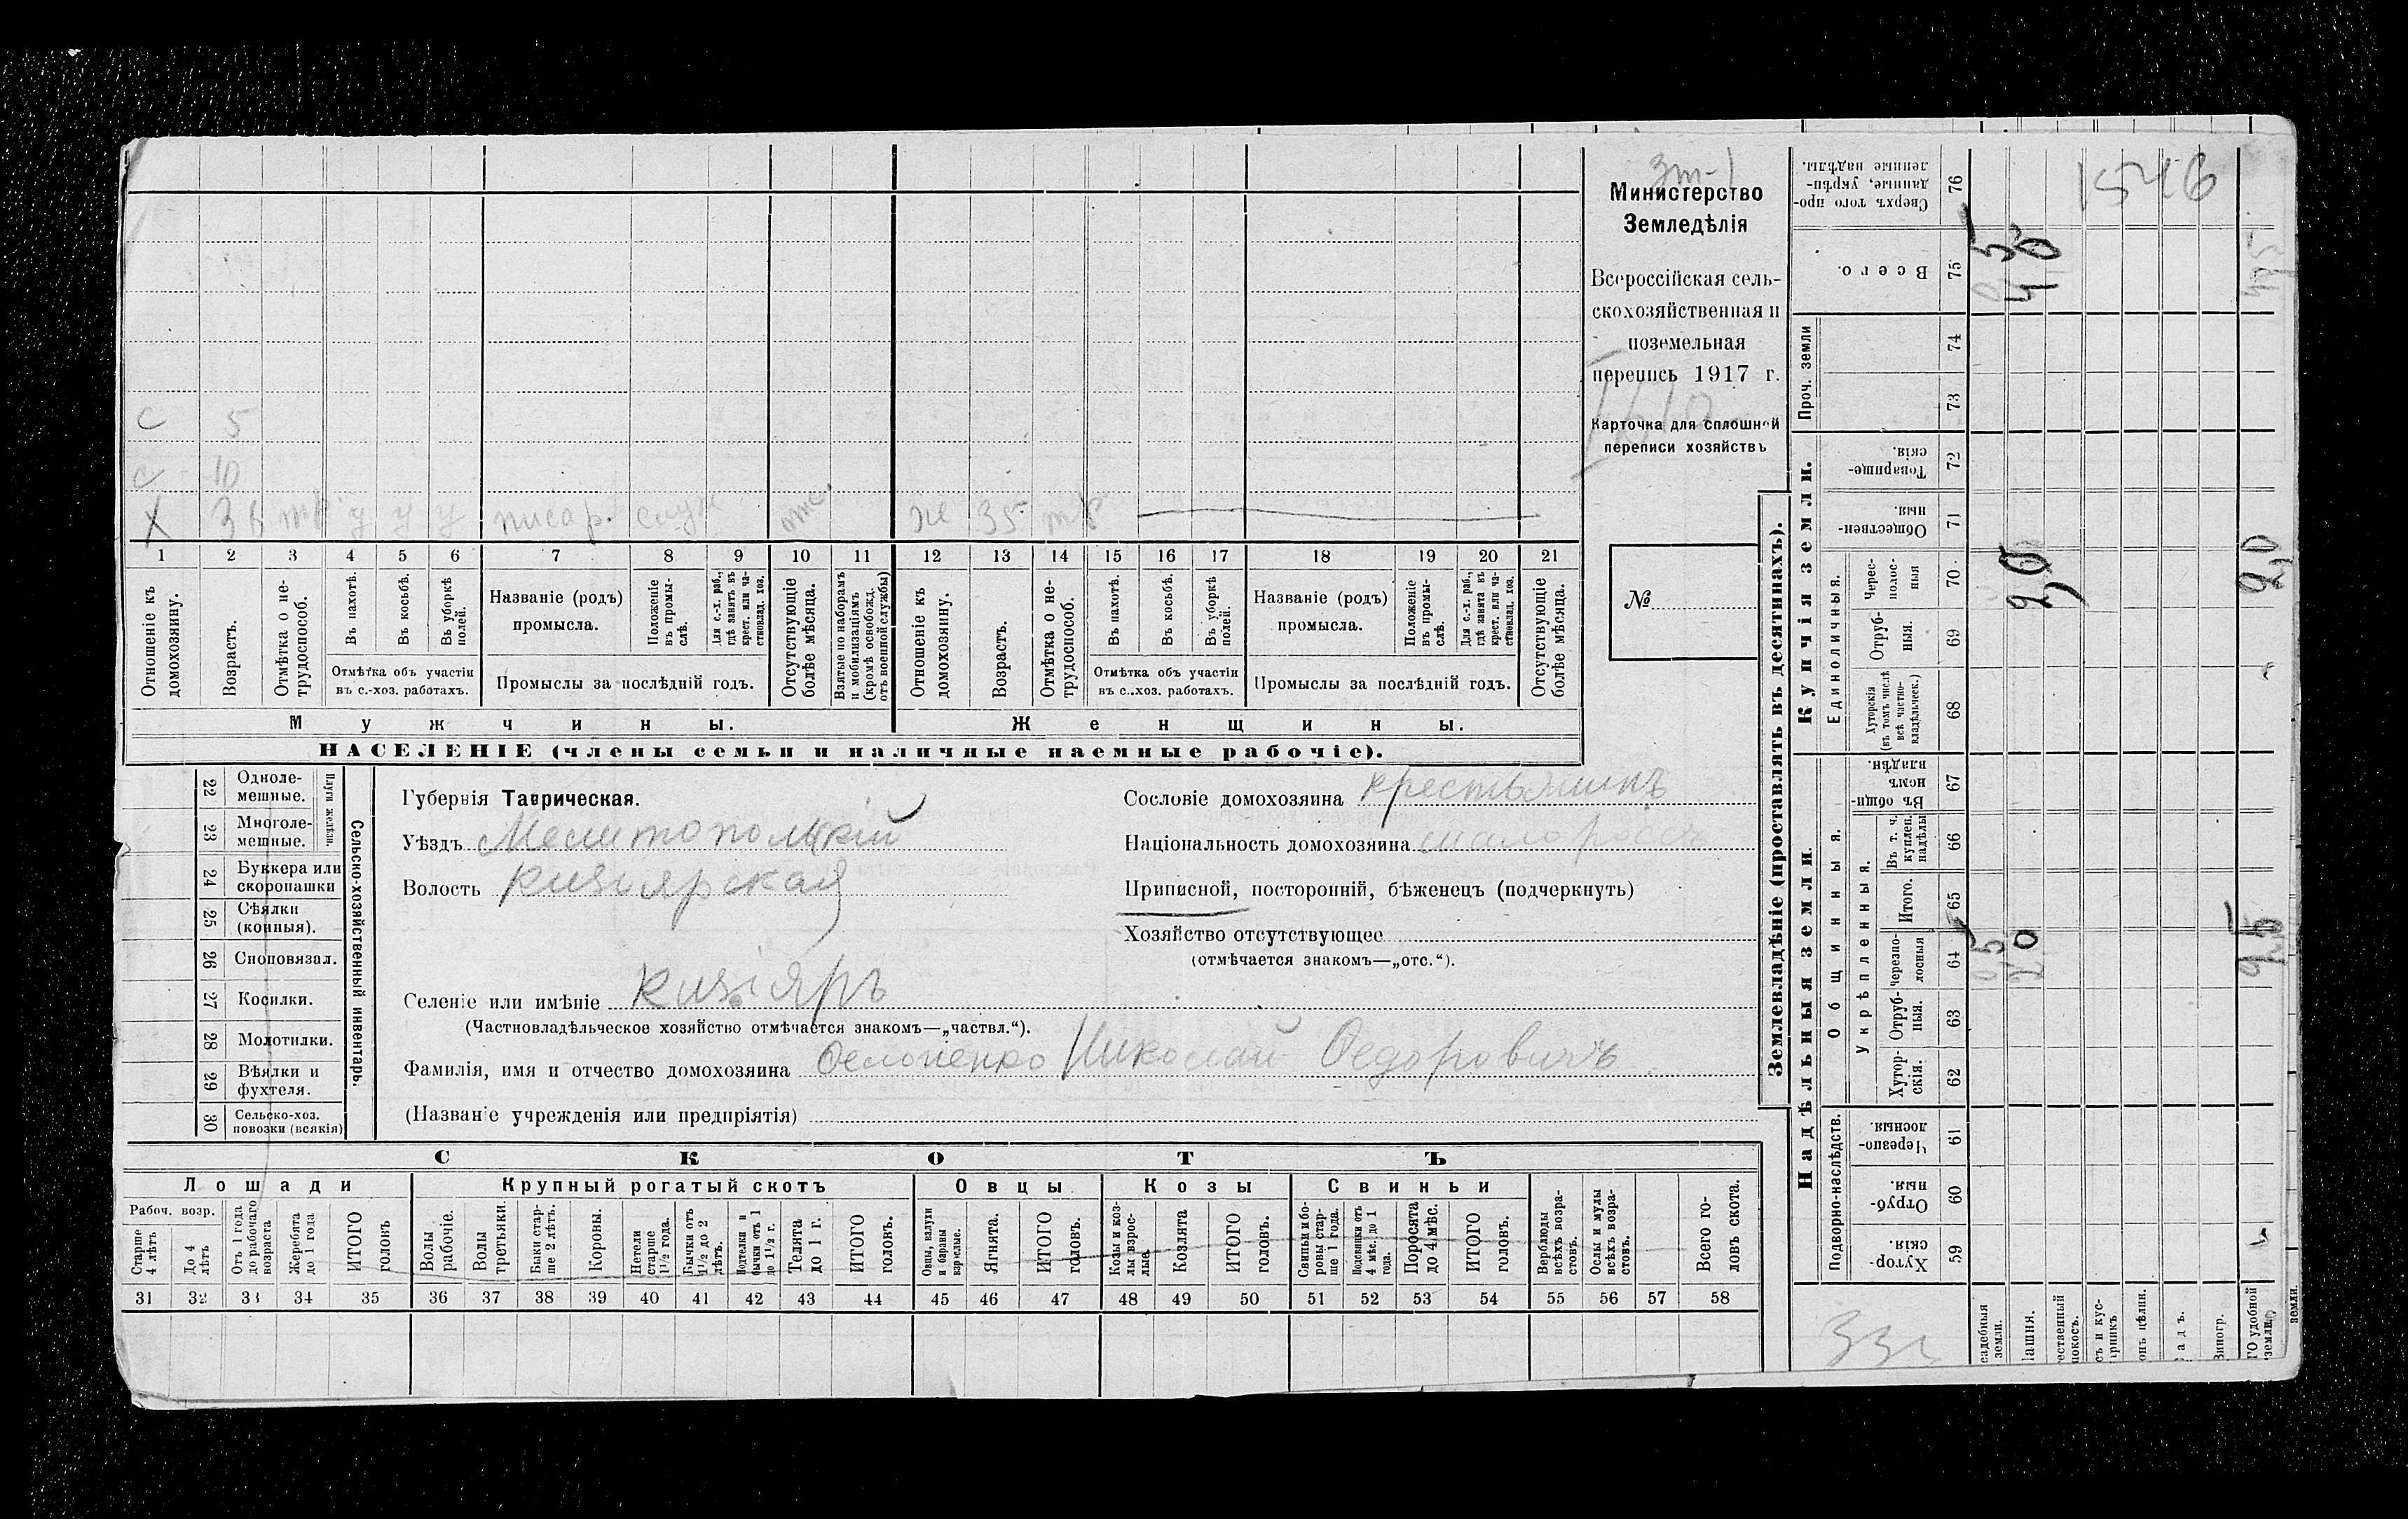 Министерство
Земледѣлія
Всероссійская сель-
скохозяйственная и
поземельная
перепись 1917 г.
Карточка для сплошной
переписи хозяйствъ
№
с 5
с 10
х тр у у у писар. служ отс. ж 35 тр
1 2 3 4 5 6 7 8 9 10 11 12 13 14 15 16 17 18 19 20 21
Отношеніе къ домохозяину.
Возрастъ.
Отмѣтка о не-трудоспособ.
Въ пахотѣ.
Въ косьбѣ.
Въ уборкѣ полей.
Отмѣтка объ участіи
въ с.-хоз. работахъ.
Названіе (родъ)
промысла.
Положеніе въ промы-слѣ.
Для с.-х. раб., гдѣ занятъ въ крест. или ча-стновлад. хоз.
Промыслы за послѣдній годъ.
Отсутствующіе болѣе мѣсяца.
Взятые по наборамъ и мобилизаціямъ (кромѣ освобожд. отъ военной службы)
Отношеніе къ домохозяину.
Возрастъ.
Отмѣтка о не-трудоспособ.
Въ пахотѣ.
Въ косьбѣ.
Въ уборкѣ полей.
Отмѣтка объ участіи
въ с..хоз. работахъ.
Названіе (родъ)
промысла.
Положеніе въ промы-слѣ.
Для с.-х. раб., гдѣ занята въ крест. или ча-стновлад. хоз.
Промыслы за послѣдній годъ.
Отсутствующіе болѣе мѣсяца.
Мужчины. Женщины.
НАСЕЛЕНІЕ (члены семьи и наличные наемные рабочіе).
Сельско-хозяйственный инвентарь.
Плуги желѣзн.
22 Одноле-мешные.
23 Многоле-мешные.
24 Буккера или скоропашки
25 Сѣялки (конныя).
26 Сноповязал.
27 Косилки.
28 Молотилки.
29 Вѣялки и фухтеля.
30 Сельско-хоз. повозки (всякія)
Губернія Таврическая.
Уѣздъ Мелитопольскій
Волость Кизіярская
Селеніе или имѣніе Кизіяръ
(Частновладѣльческое хозяйство отмѣчается знакомъ—„частвл.“).
Фамилія, имя и отчество домохозяина Николай Федоровичъ
(Названіе учрежденія или предпріятія)
Сословіе домохозяина крестьянинъ
Національность домохозяина малоросъ
Приписной, посторонній, бѣженецъ (подчеркнуть)
Хозяйство отсутствующее
(отмѣчается знакомъ—„отс.“).
СКОТЪ
Лошади Крупный рогатый скотъ Овцы Козы Свиньи
Рабоч. возр.
Старше 4 лѣтъ
До 4 лѣтъ
Отъ 1 года до рабочаго возраста
Жеребята до 1 года
ИТОГО головъ
Волы рабочіе.
Волы третьяки.
Быки стар-ше 2 лѣтъ.
Коровы.
Нетели старше 1½ года.
Бычки отъ 1½ до 2 лѣтъ.
Подтелки и бычки отъ 1 до 1½ г.
Телята до 1 г.
ИТОГО головъ.
Овцы, валухи и бараны взрослые.
Ягнята.
ИТОГО головъ.
Козы и коз-лы взрос-лые.
Козлята
ИТОГО головъ.
Свиньи и бо-ровы стар-ше 1 года.
Подсвинки отъ 4 мѣс. до 1 года.
Поросята до 4 мѣс.
ИТОГО головъ.
Верблюды всѣхъ возра-стовъ.
Ослы и мулы всѣхъ возра-стовъ.
Всего го-ловъ скота.
31 32 33 34 35 36 37 38 39 40 41 42 43 44 45 46 47 48 49 50 51 52 53 54 55 56 57 58
Землевладѣніе (проставлять въ десятинахъ).
Надѣльныя земли. Купчія земли. Проч. земли
Подворно-наслѣдств.
Общинныя.
Укрѣпленныя.
Единоличныя.
Хутор-скія. 59
Отруб-ныя. 60
Черезпо-лосныя. 61
Хутор-скія. 62
Отруб-ныя. 63
Черезпо-лосныя 64
Итого. 65
Въ т. ч. куплен. надѣлы 66
Въ общин-номъ владѣн. 67
Хуторскія (въ томъ числѣ всѣ частно-владѣльческ.) 68
Отруб-ныя. 69
Черес-полос-ныя 70
Обществен-ныя. 71
Товарище-скія. 72
73
74
Всего. 75
Сверхъ того про-данные, укрѣп-ленные надѣлы. 76
1546
20
20